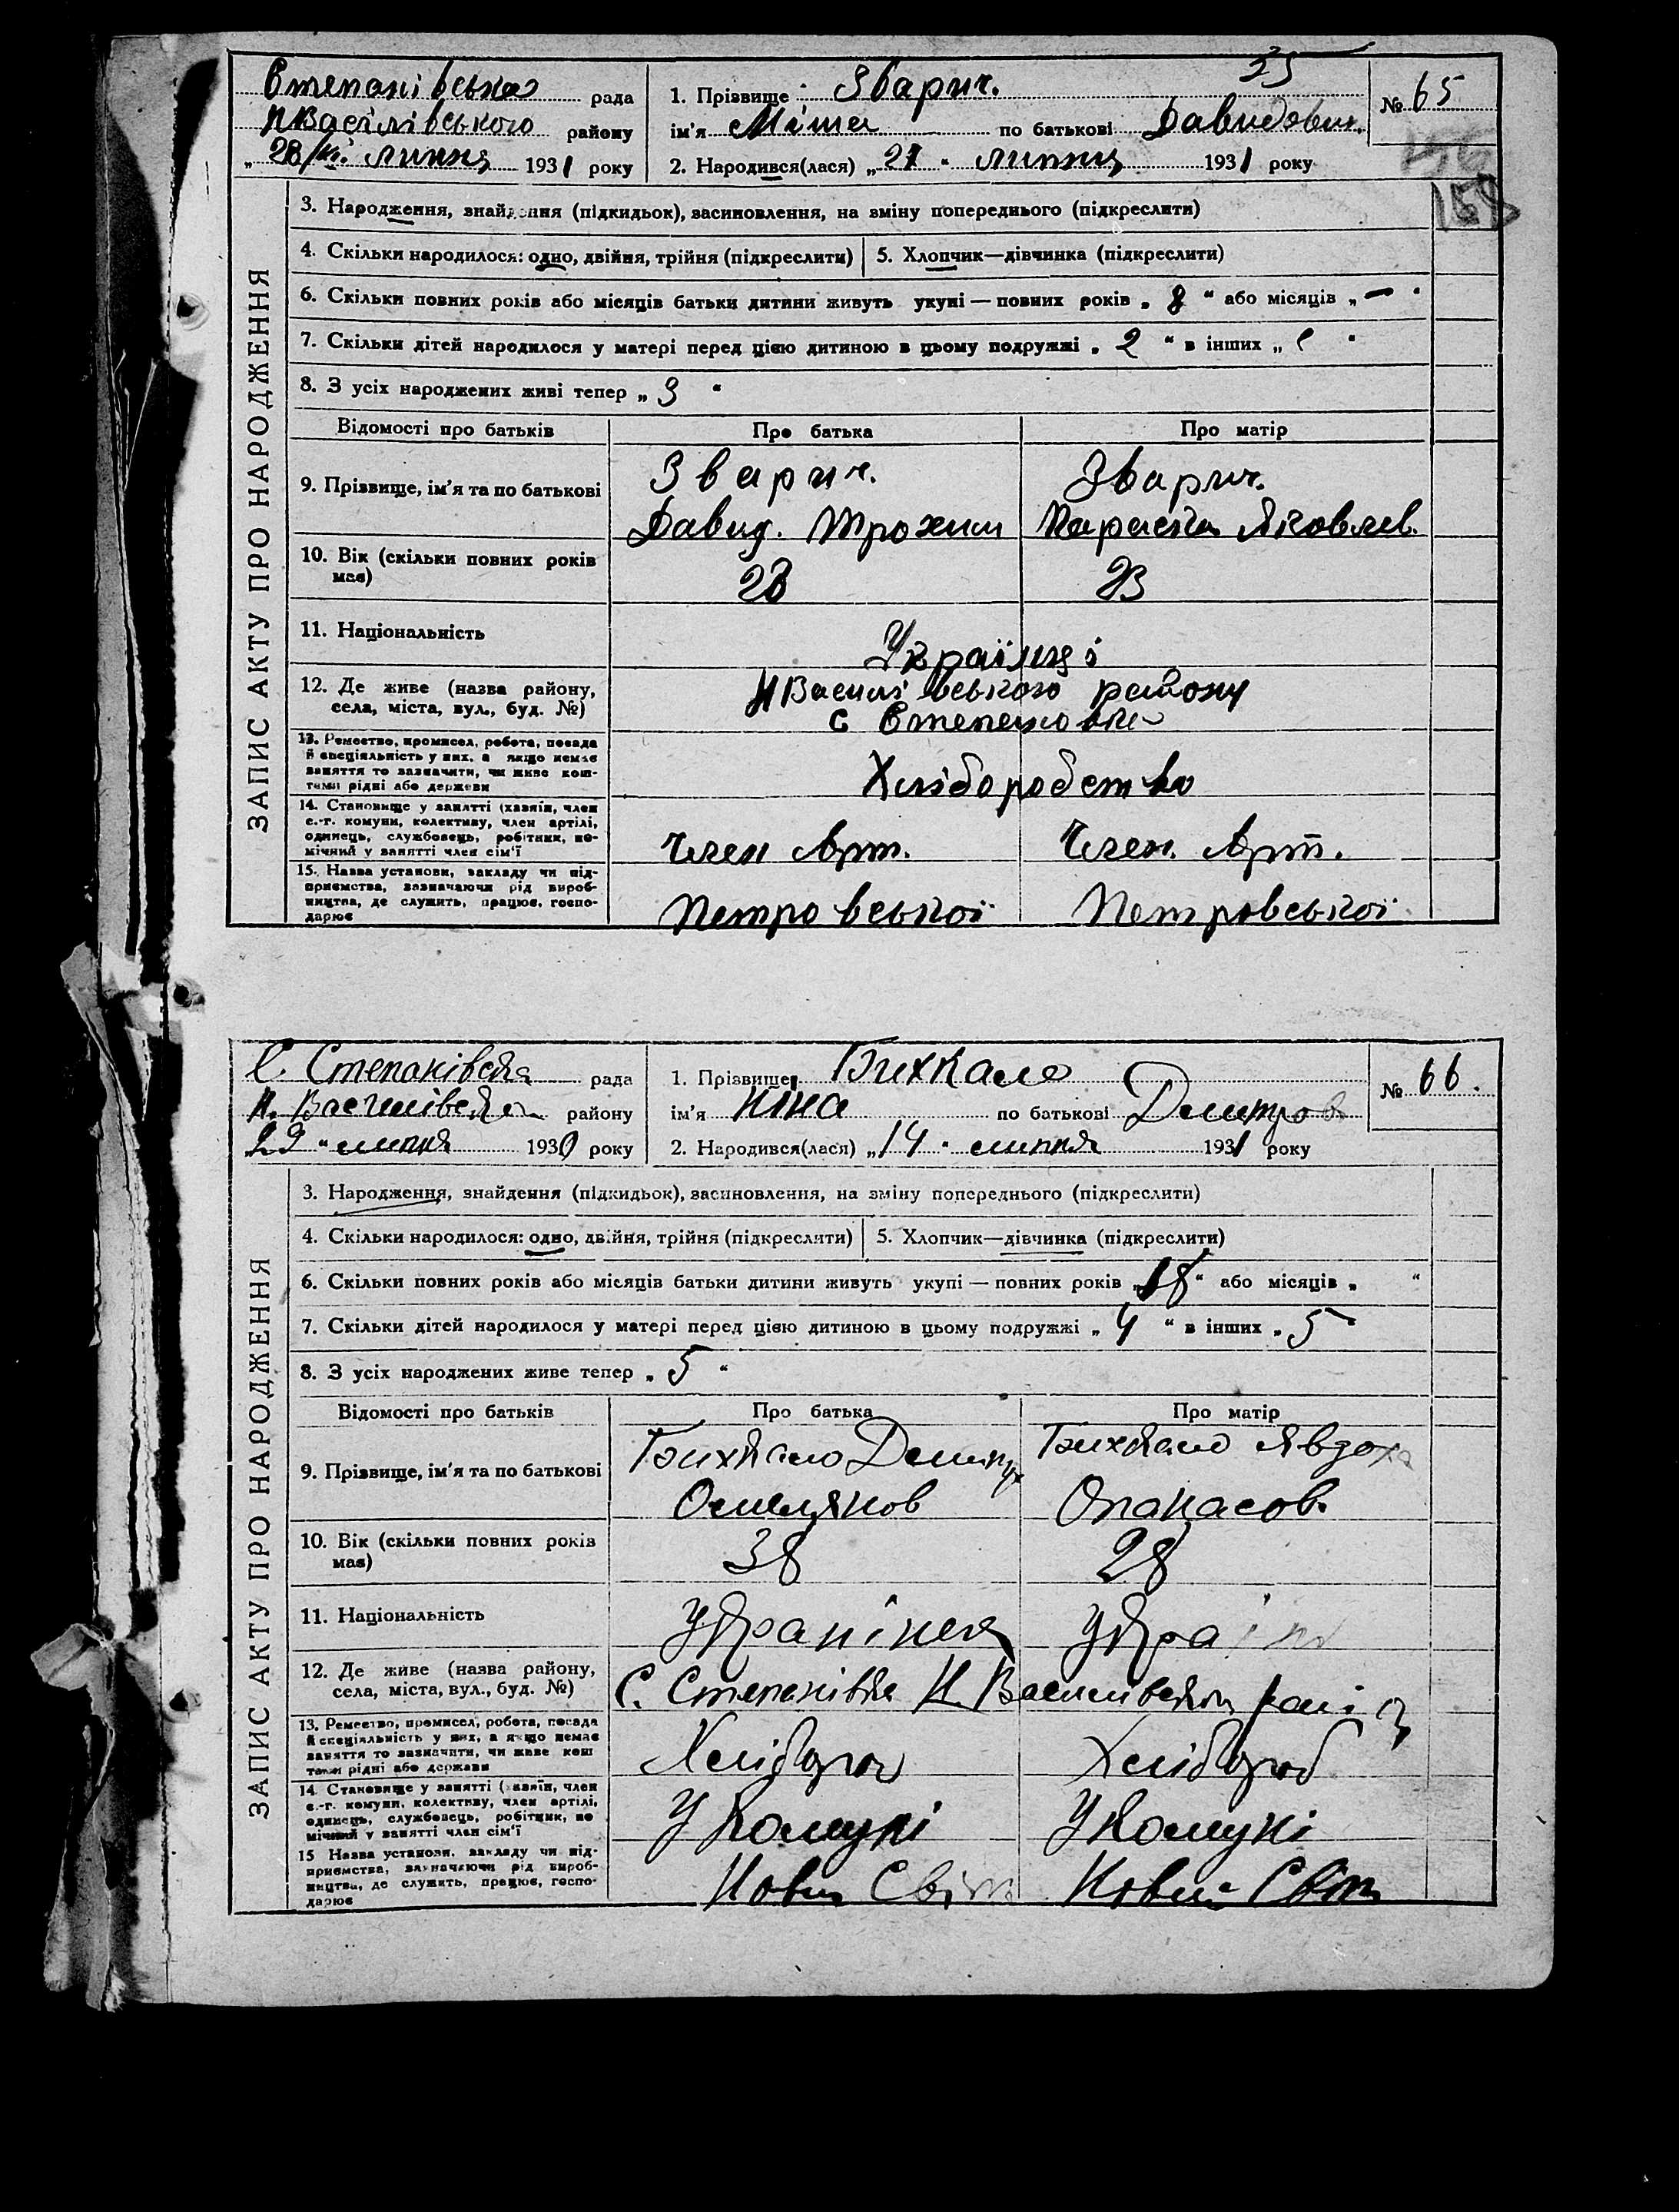 35
Степанівська рада
НВасілівського району
„28/VII липня 1931 року
1. Прізвище Зварич.
ім'я Міша по батькові Давидович.
2. Народився(лася) „27" липня 1931 року
№ 65
158
ЗАПИС АКТУ ПРО НАРОДЖЕННЯ
3. Народження, знайдення (підкидьок), засиновлення, на зміну попереднього (підкреслити)
4. Скільки народилося: одно, двійня, трійня (підкреслити)
5. Хлопчик—дівчинка (підкреслити)
6. Скільки повних років або місяців батьки дитини живуть укупі — повних років „8" або місяців „—"
7. Скільки дітей народилося у матері перед цією дитиною в цьому подружжі „2" в інших „ "
8. З усіх народжених живі тепер „3"
Відомості про батьків Про батька Про матір
9. Прізвище, ім'я та по батькові
Зварич.
Давид. Трохим
Зварич.
Параска Яковлев.
10. Вік (скільки повних років має)
28
23
11. Національність
Українці
12. Де живе (назва району, села, міста, вул., буд. №)
НВасилівського району
с Степановка
13. Ремество, промисел, робота, посада й спеціяльність у них, а якщо немає заняття то зазначити, чи живе коштами рідні або держави
Хліборобство
14. Становище у занятті (хазяїн, член с.-г. комуни, колективу, член артілі, одинець, службовець, робітник, помічний у занятті член сім'ї
Член Арт.
Член. Арт.
15. Назва установи, закладу чи підприємства, зазначаючи рід виробництва, де служить, працює, господарює
Петровської
Петровської
С. Степанівка рада
Н. Василівська району
29 " липня 1930 року
1. Прізвище Бихкало
ім'я Ніна по батькові Дмитров
2. Народився(лася) „14" липня 1931 року
№ 66.
ЗАПИС АКТУ ПРО НАРОДЖЕННЯ
3. Народження, знайдення (підкидьок), засиновлення, на зміну попереднього (підкреслити)
4. Скільки народилося: одно, двійня, трійня (підкреслити)
5. Хлопчик—дівчинка (підкреслити)
6. Скільки повних років або місяців батьки дитини живуть укупі — повних років „18" або місяців „ "
7. Скільки дітей народилося у матері перед цією дитиною в цьому подружжі „4" в інших „5"
8. З усіх народжених живе тепер „5"
Відомості про батьків Про батька Про матір
9. Прізвище, ім'я та по батькові
Бихкало Дмитр
Омелянов
Бихкало Явдоха
Опанасов.
10. Вік (скільки повних років має)
38
28
11. Національність
Україн
12. Де живе (назва району, села, міста, вул., буд. №)
С. Степанівка Н. Василівськ
13. Ремество, промисел, робота, посада й спеціяльність у них, а якщо немає заняття то зазначити, чи живе коштами рідні або держави
Хлібороб
Хлібороб
14. Становище у занятті (хазяїн, член с.-г. комуни, колективу, член артілі, одинець, службовець, робітник, помічний у занятті член сім'ї
У Комуні
У Комуні
15 Назва установи, закладу чи підприємства, зазначаючи рід виробництва, де служить, працює, господарює
Новий Світ
Новий Світ